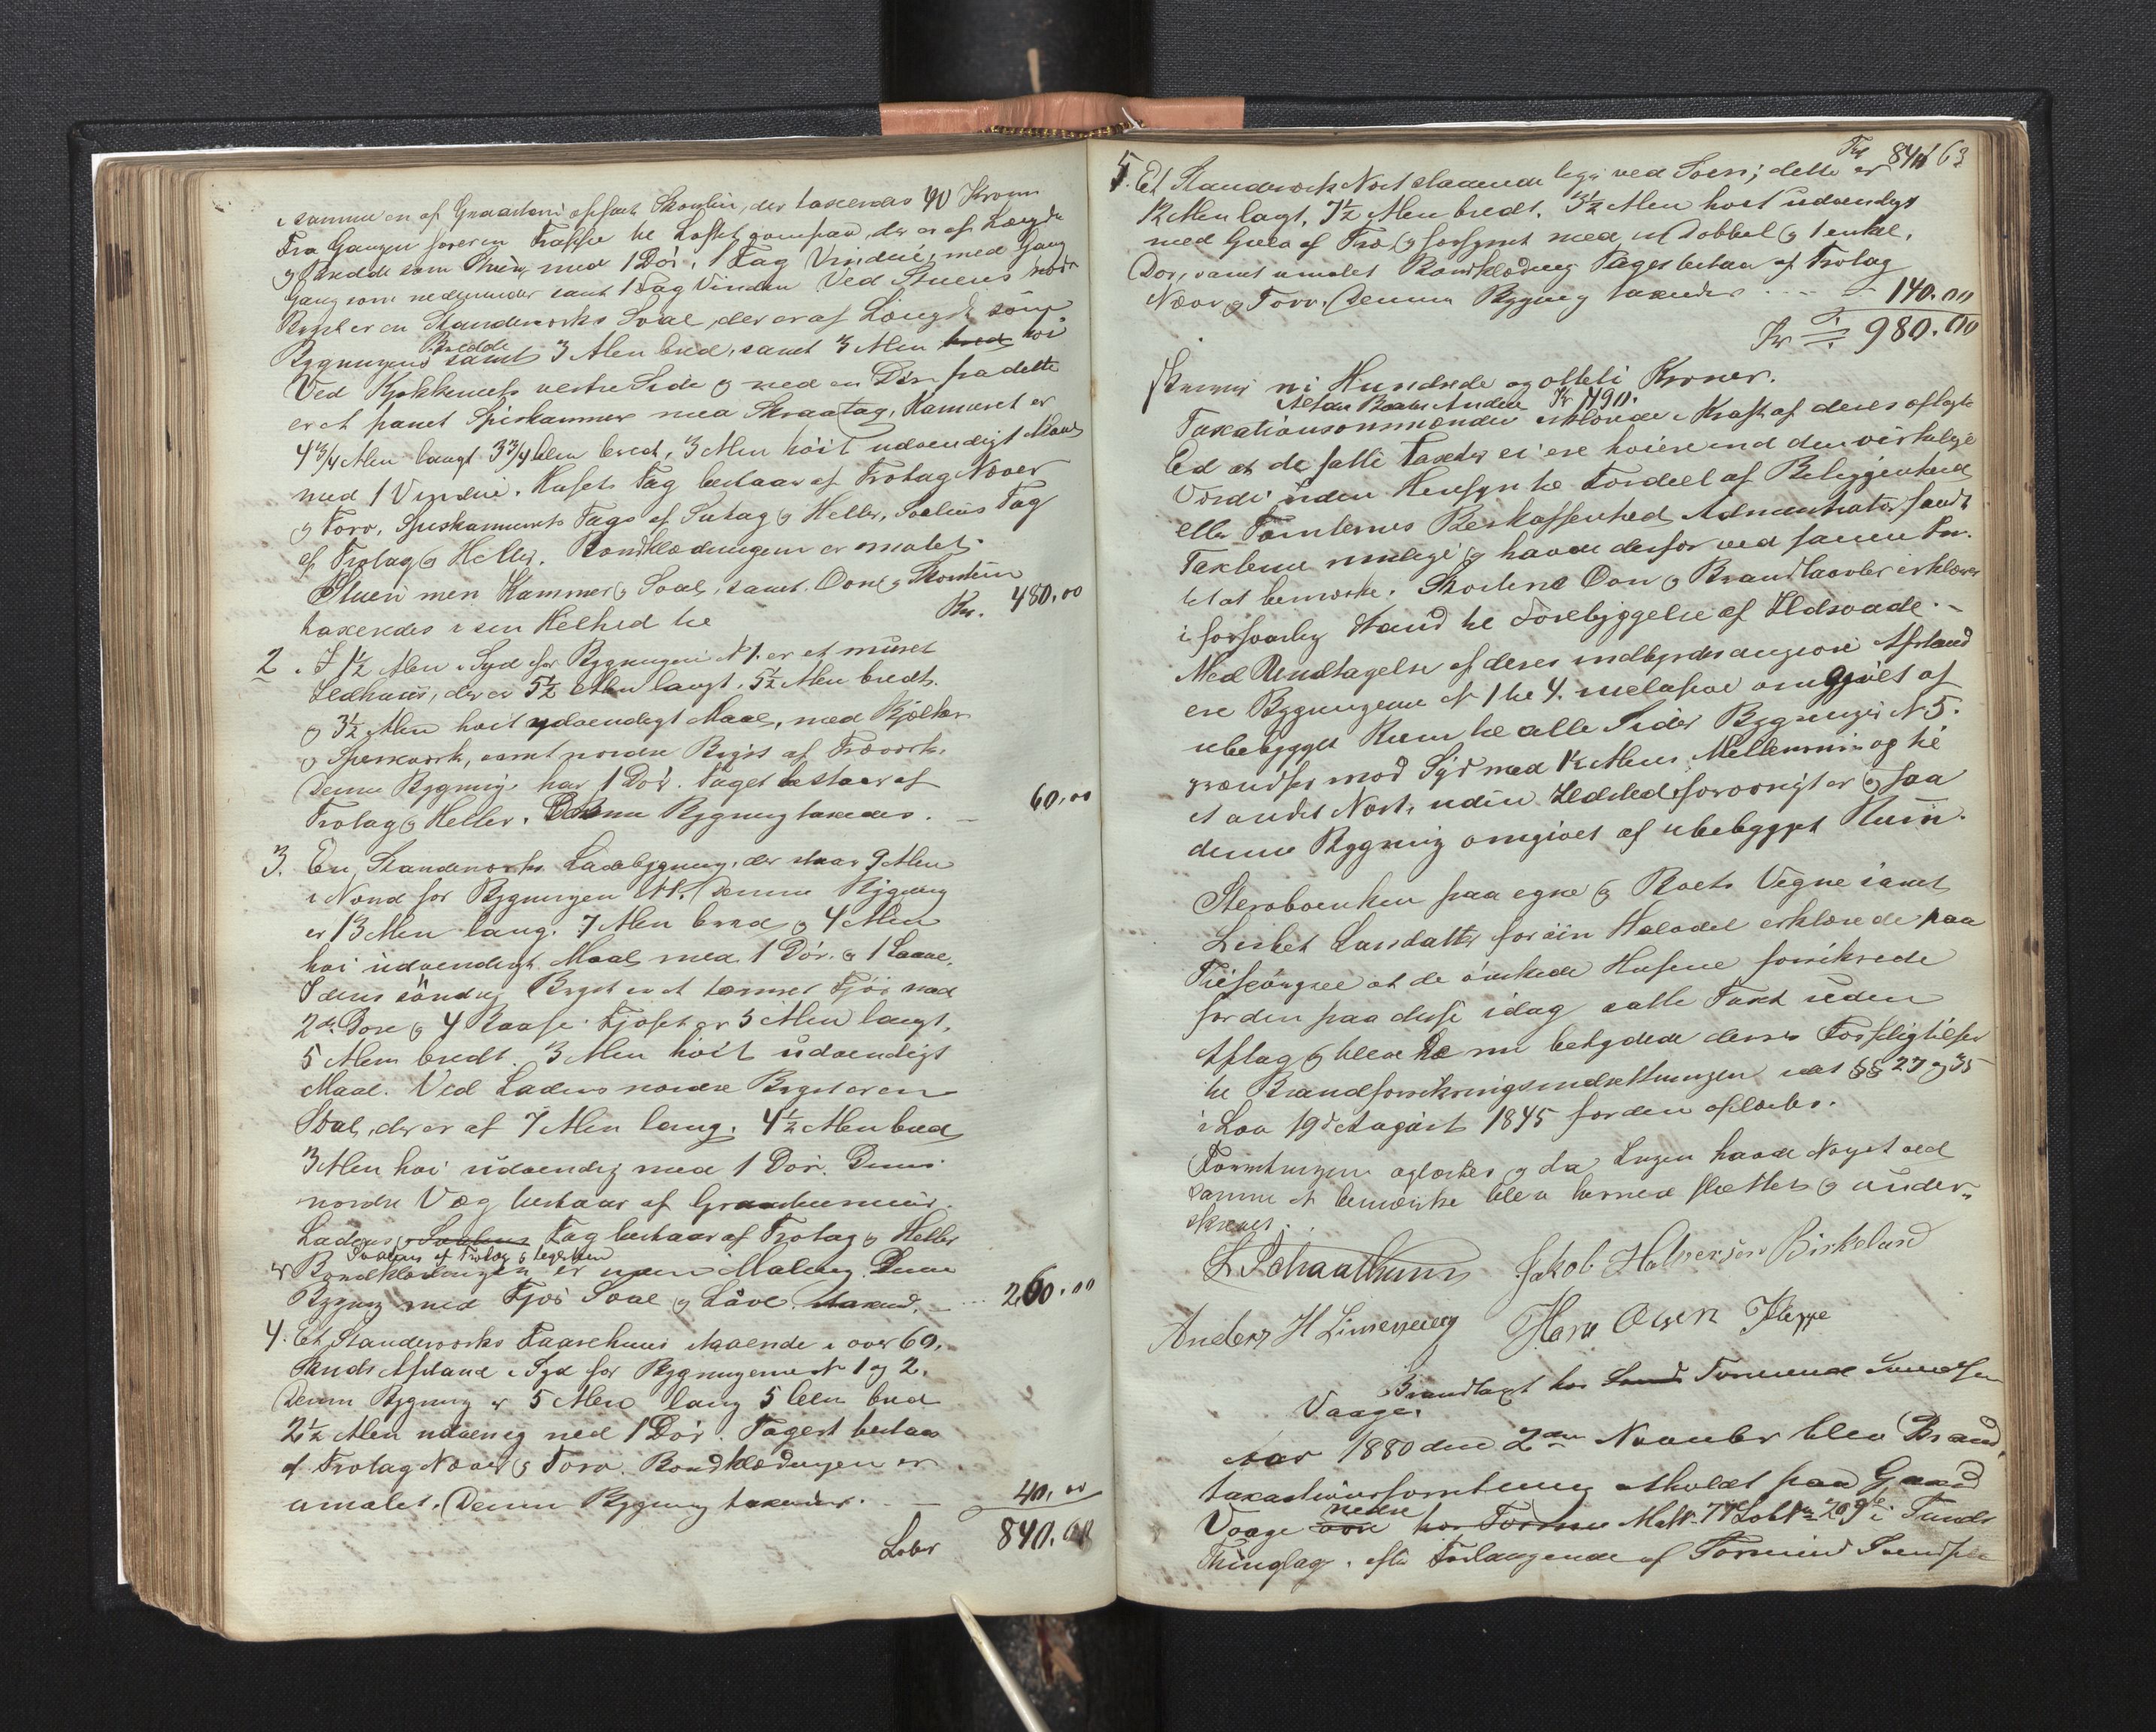 i samme en af Graasteen opfört Skorsten, der taxeredes 40 Kroner
Fra Gangen förer en Trappe til Loftet ovenpaa, der er af Længde
og Bredde som Stuen, med 1 Dör, 1 Fag Vinduer, med Gang
Gang som nedenunder samt 1 Fag Vinduer Ved Stuens nordre
Bryst er en Standværks Sval, der er af Længde som
Bredde
Bygningens samt 3 Alen bred, samt 3 Alen bred höi
Ved Kjökkenets vestre Side og med en Dör fra dette
er et panet Spiskammer med Skraatag, Kammeret er
4 3/4 Alen langt 3 3/4 Alen bredt, 3 Alen höit udvendigt Maal
med 1 Vindue. Husets Tag bestaar af Trotag Næver
og Torv, Spiskammerets Tag af Sutag og Heller, Svalens Tag
af Trotag og Heller. Bordklædningen er umalet.
Stuen med Kammer og Sval, samt Ovne og Skorsten
taxeredes i sin Helhed til Kr. 480.00
2. I 1 1/2 Alen i Syd for Bygningen N 1. er et muret
Ildhuus, der er 5 1/2 Alen langt, 5 1/2 Alen bredt.
og 3 1/2 Alen höit udvendigt Maal, med Bjelker
og Sperreværk, samt nordre Bryst af Træværk.
Denne Bygning har 1 Dör. Taget bestaar af
Trotag og Heller. Denne Bygning taxeredes. – 60.00
3. En Standværks Ladebygning, der staar 9 Alen
i Nord for Bygningen N 1. Denne Bygning
er 13 Alen lang, 7 Alen bred og 4 Alen
höi udvendigt Maal med 1 Dör og 1 Laave.
I dens söndre Bryst er et tömret Fjös med
2de Döre og 4 Baase. Fjöset er 5 Alen langt,
5 Alen bredt. 3 Alen höit udvendigt
Maal. Ved Ladens nordre Bryst er en
Sval, der er af 7 Alen lang. 4 1/2 Alen bred
3 Alen höi udvendig med 1 Dör. Dens
nordre Væg bestaar af Graasteensmuur.
Ladens og Svalens Tag bestaar af Trotag og Heller
Svalens af Trotag og
Bordklædningen er uden Maling. Denne
Bygning med Fjös Sval og Låve taxered. – ... 260.00
4. Et Standværks Faarehuus staaende i over 60.
Skridts Afstand i Syd for Bygningerne N 1 og 2.
Denne Bygning er 5 Alen lang 5 Alen bred
2 1/2 Alen udvendig med 1 Dör. Taget bestaar
af Trotag Næver og Torv. Bordklædningen er
umalet. Denne Bygning taxeredes. – 40.00
Lober 840.00
Trf 840 63
5. Et Standværks Nöst staaende lige ved Söen; dette er
12 Alen langt, 7 1/2 Alen bredt. 3 1/2 Alen höit udvendigt
med Gulv af Træ og forsynet med 1 dobbel og 1 enkel,
Dör, samt umalet Bordklædning Taget bestaar af Trotag
Næver og Torv. Denne Bygning taxeredes ... – 140.00
Kr 980.00
skriver ni Hundrede og otteti Kroner.
Kr 490.
Taxationsmændene erklærede i Kraft af deres aflagte
Ed at de satte Taxter ei ere höiere end den virkelige
Værdi uden Hensyn til Fordeel af Beliggenhed
eller Tomternes Beskaffenhed Administrator fandt
Taxterne rimelige og havde derfor ved samme Intet
at bemærke. Skorstene Ovn og Brandtaarbr erklæres
i forsvarlig Stand til Forebyggelse af Ildsvaade. –
Med Undtagelse af deres indbyrdes angivne Afstand
ere Bygningerne N 1 til 4. indelusive omgivet af
ubebygget Rum til alle Sider Bygningen N 5.
grændser mod Syd med 1 1/2 Alens Mellemrum op til
et andet Nöst, uden Ildsted forövrigt er og saa
denne Bygning omgivet af ubebygget Rum.
paa egne og Boets Vegne samt
Lisbet Larsdatter for sin Halvdel erklærede paa
Tilspörgsel at de önskede Husene forsikrede
for den paa disse idag satte Taxt uden
Aftag og blev de nu betydede deres Forpligtelser
til Brandforsikringsindretningen efter §§ 27 og 35
i Lov 19de August 1845 for dem oplæst.
Forretningen oplæstes og da Ingen havde Noget ved
samme at bemærke blev samme sluttet og under-
skrevet.
L. Schaathun Jakob Halversen Birkeland
Anders H Hans Olsen Kleppe
Brandtaxt hos Tormund Svendsen
Vaage.
Aar 1880 den 2den November blev Brand,
taxationsforretning afholdt paa Gaard
nedre
Vaage övre hos Tormu Matr. 77 Lob N 209 b i Finds
Thinglag, efter Forlangende af Tormund Svendsen